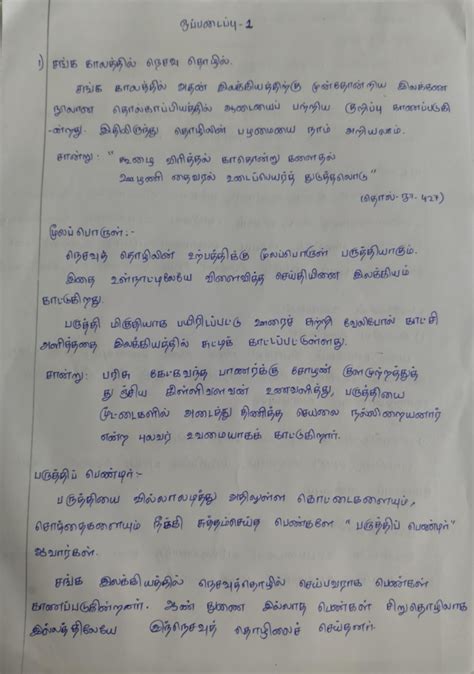 ஒப்படைப்பு - 1
1) சங்க காலத்தில் நெசவு தொழில்.
சங்க காலத்தில் அதன் இலக்கியத்திற்கு முன்தோன்றிய இலக்கண
நூலான தொல்காப்பியத்தில் ஆடையைப் பற்றிய குறிப்பு காணப்படுகி
-ன்றது. இதிலிருந்து தொழிலின் பழமையை நாம் அறியலாம்.
சான்று: " கூழை விரித்தல் காதொன்று களைதல்
ஊழணி தைவரல் உடைபெயர்த் துடுத்தலொடு"
(தொல்-நூ. 427)
மூலப்பொருள்:-
நெசவுத் தொழிலின் உற்பத்திக்கு மூலப்பொருள் பருத்தியாகும்.
இதை உள்நாட்டிலேயே விளைவித்த செய்தியினை இலக்கியம்
காட்டுகிறது.
பருத்தி மிகுதியாக பயிரிடப்பட்டு ஊரைச் சுற்றி வேலிபோல் காட்சி
அளித்ததை இலக்கியத்தில் சுட்டிக் காட்டப்பட்டுள்ளது.
சான்று: பரிசு கேட்கவந்த பாணர்க்கு சோழன் குளமுற்றத்துத்
துஞ்சிய கிள்ளிவளவன் உணவளித்து, பருத்தியை
மூட்டைகளில் அடைத்து திணித்த செயலை நல்லிறையனார்
என்ற புலவர் உவமையாகக் காட்டுகிறார்.
பருத்திப் பெண்டிர்:-
பருத்தியை வில்லாலடித்து அதிலுள்ள கொட்டைகளையும்,
சொத்தைகளையும் நீக்கி சுத்தம்செய்த பெண்களே "பருத்திப் பெண்டிர்"
ஆவார்கள்.
சங்க இலக்கியத்தில் நெசவுத்தொழில் செய்பவராக பெண்கள்
காணப்படுகின்றனர். ஆண் துணை இல்லாத பெண்கள் சிறுதொழிலாக
இல்லத்திலேயே இந்நெசவுத் தொழிலைச் செய்தனர்.